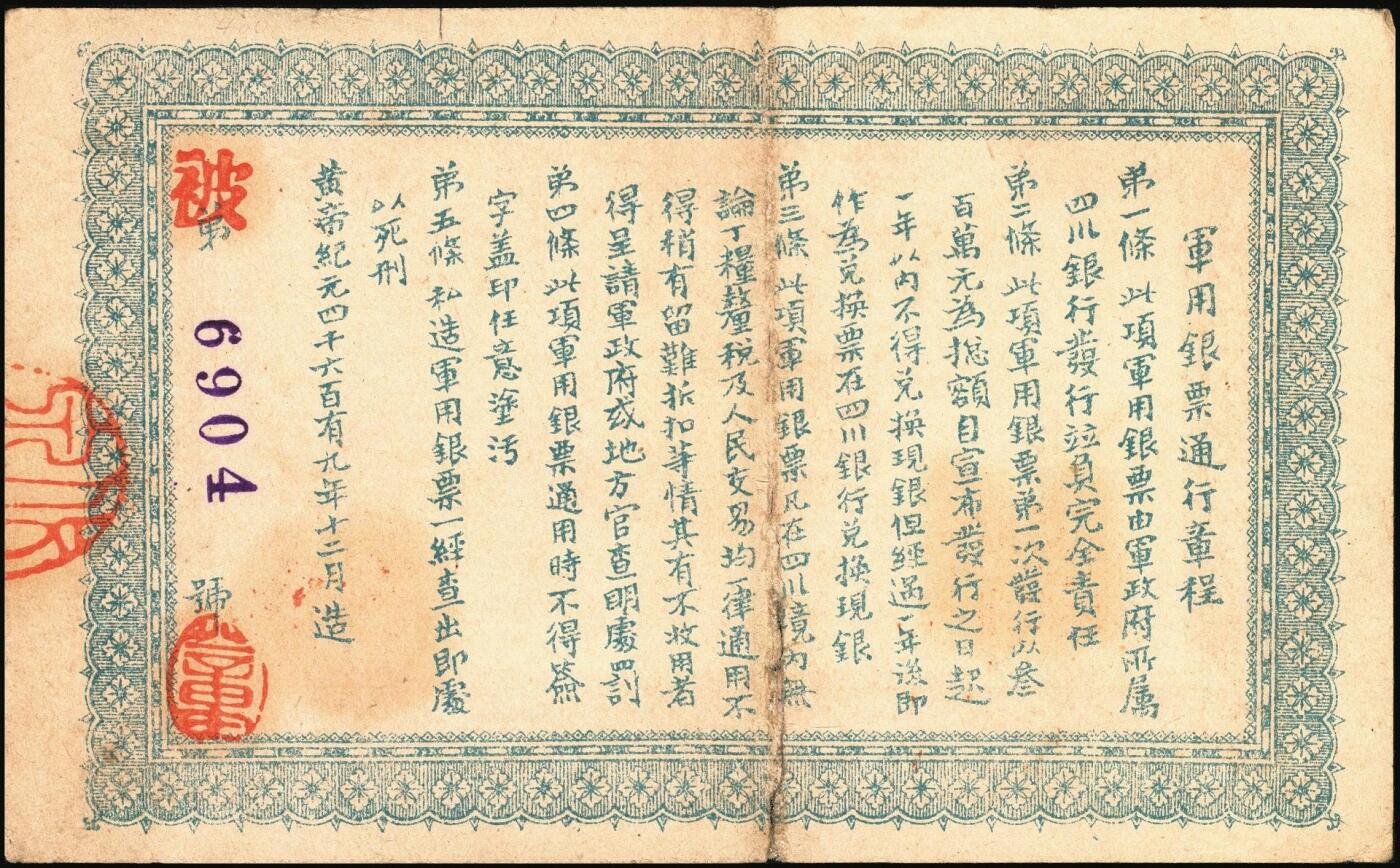 軍用銀票通行章程
弟一條 此項軍用銀票由軍政府所属
四川銀行發行竝負完全責任
弟二條 此項軍用銀票弟一次發行以叁
百萬元為揔額自宣布發行之日起
一年以內不得兑換現銀但經過一年後即
作為兑換票在四川銀行兑換現銀
弟三條 此項軍用銀票凡在四川境內無
論丁糧釐税及人民交易均一律通用不
得稍有留難折扣等情其有不收用者
得呈請軍政府或地方官查明處罰
弟四條 此項軍用銀票通用時不得簽
字盖印任意塗汚
弟五條 私造軍用銀票一經查出即處
以死刑
黃帝紀元四千六百有九年十二月造
被
弟 6904 號